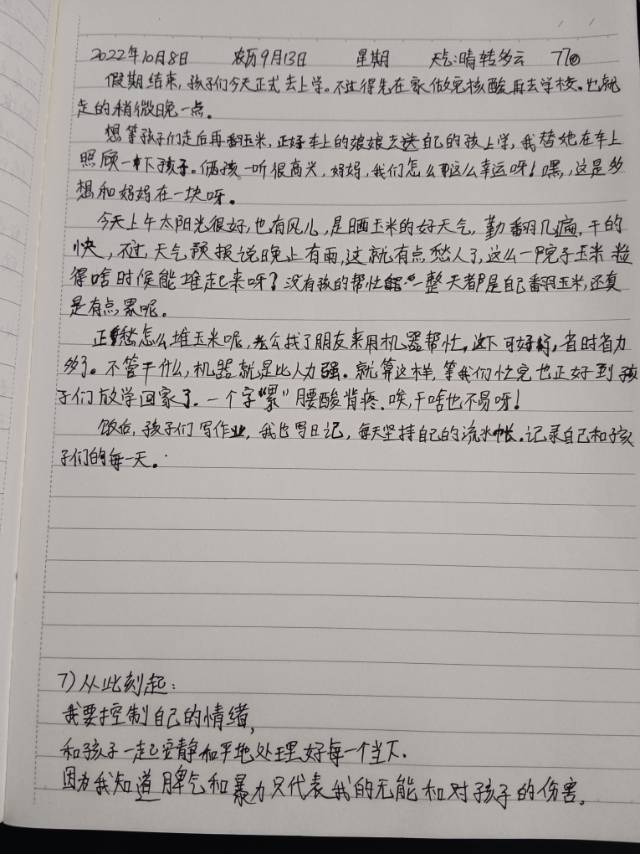 2022年10月8日 农历9月13日 星期 天气:晴转多云 77
假期结束,孩子们今天正式去上学。不过得先在家做完核酸再去学校。也就
走的稍微晚一点。
想等孩子们走后再翻玉米,正好车上的娘娘去送自己的孩上学,我替她在车上
照顾一下孩子。俩孩一听很高兴,妈妈,我们怎么那么幸运呀!嘿,这是多
想和妈妈在一块呀。
今天上午太阳光很好,也有风儿,是晒玉米的好天气,勤翻几遍,干的
快,不过,天气预报说晚上有雨,这就有点愁人了,这么一院子玉米粒
得啥时候能堆起来呀?没有孩的帮忙一整天都是自己翻玉米,还真
是有点累呢。
正愁怎么堆玉米呢,老公找了朋友来用机器帮忙,这下可好了,省时省力
多了。不管干什么,机器就是比人力强。就算这样,等我们忙完也正好到孩
子们放学回家了。一个字"累"腰酸背疼、唉,干啥也不易呀!
饭后,孩子们写作业,我也写日记,每天坚持自己的流水帐。记录自己和孩
子们的每一天。
7)从此刻起:
我要控制自己的情绪,
和孩子一起安静和平地处理好每一个当下.
因为我知道脾气和暴力只代表我的无能和对孩子的伤害。